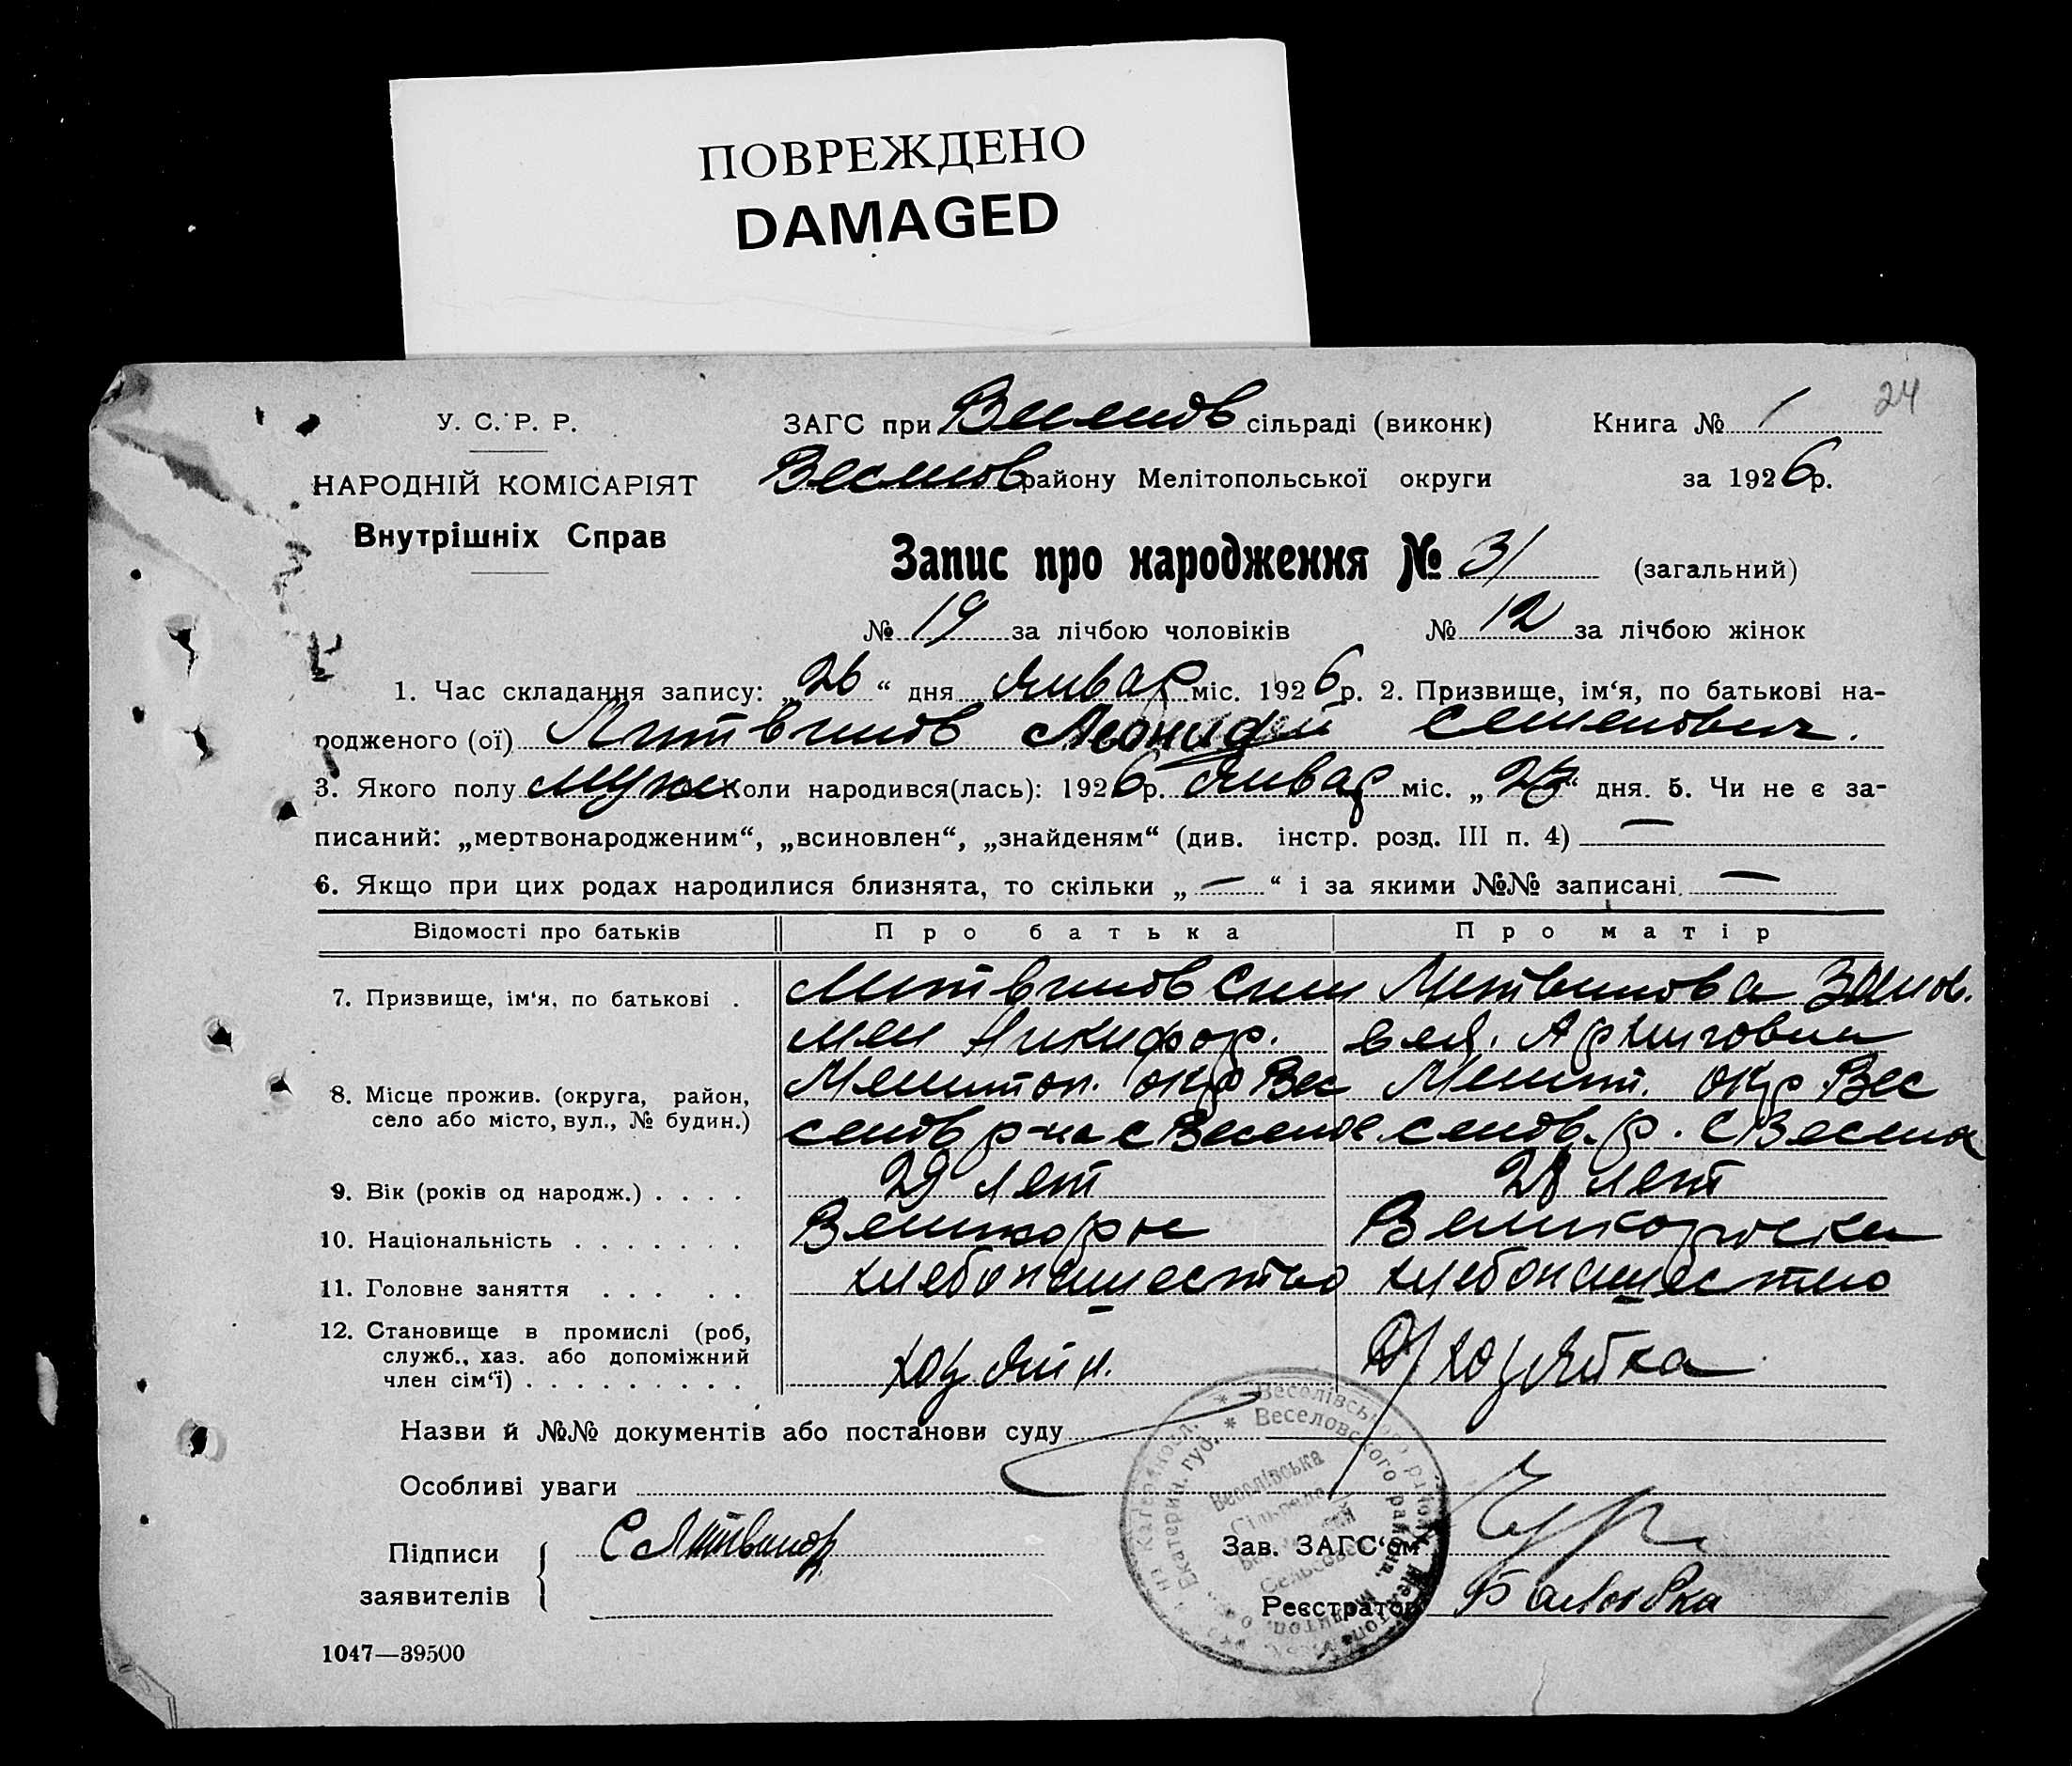 ПОВРЕЖДЕНО
DAMAGED
24
У. С. Р. Р.
НАРОДНІЙ КОМІСАРІЯТ
Внутрішніх Справ
ЗАГС при Веселов сільраді (виконк)
Веселов району Мелітопольської округи
Книга № 1
за 1926 р.
Запис про народження № 31 (загальний)
№ 19 за лічбою чоловіків № 12 за лічбою жінок
1. Час складання запису: „26“ дня январ міс. 1926 р. 2. Призвище, ім‘я, по батькові на-
родженого (ої) Литвинов Леонидий Семенович.
3. Якого полу муж Коли народився(лась): 1926 р. январ міс. „23“ дня. 5. Чи не є за-
писаний: „мертвонародженим“, „всиновлен“, „знайденям“ (див. інстр. розд. III п. 4) —
6. Якщо при цих родах народилися близнята, то скільки „—“ і за якими №№ записані —
Відомості про батьків Про батька Про матір
7. Призвище, ім‘я, по батькові . Литвинов Литвинова
Никифор.
8. Місце прожив. (округа, район, Мелитоп. окр Вес Мелит. окр Вес
село або місто, вул., № будин.) селов р-на с Веселое селов. р. с Веселое
9. Вік (років од народж.) . . . . 29 лет 28 лет
10. Національність . . . . . . . Великорос Великороска
11. Головне заняття . . . . . хлебопашество хлебопашество
12. Становище в промислі (роб,
служб., хаз. або допоміжний хозяин. Д/хозяйка
член сім‘ї) . . . . . . . . .
Назви й №№ документів або постанови суду
Особливі уваги
Підписи
заявителів
С Литвинов
Зав. ЗАГС‘ом
Реєстратор
Веселівська
Веселовского района
Екатерин. губ.
1047—39500